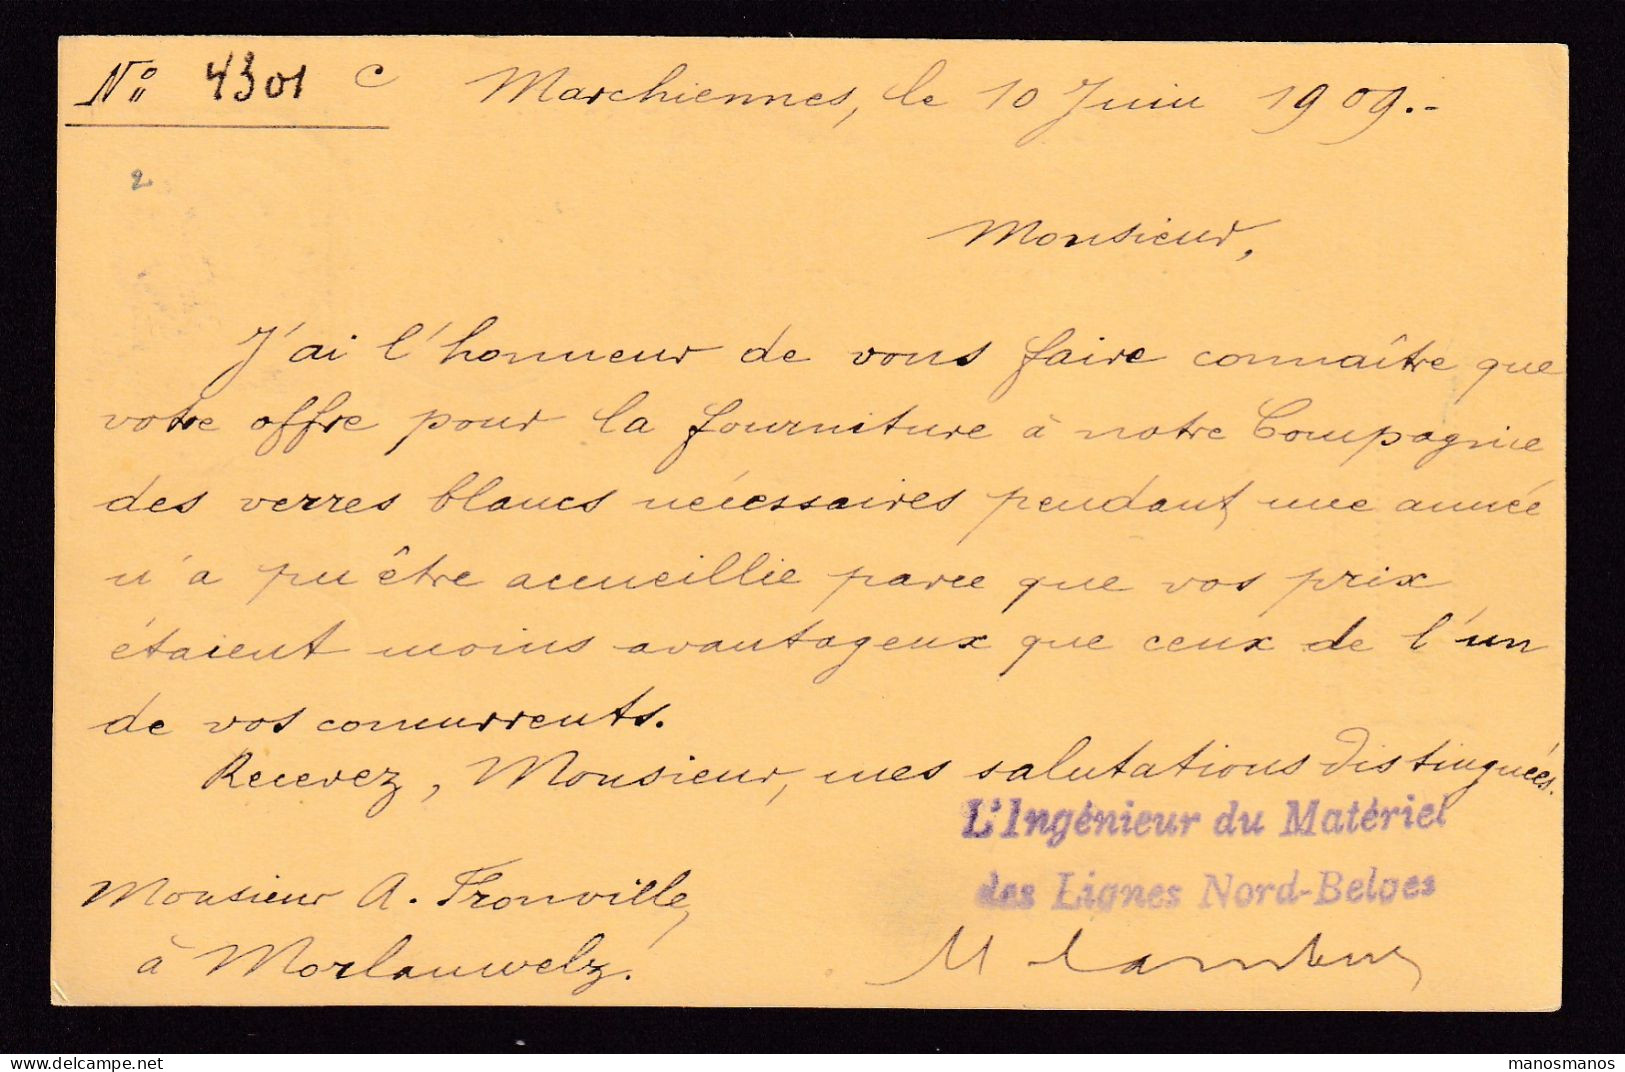 N° 4301 c Marchiennes, le 10 Juin 1909.-
2
Monsieur,
J'ai l'honneur de vous faire connaître que
votre offre pour la fourniture à notre Compagnie
des verres blancs nécessaires pendant une année
n'a pu être accueillie parce que vos prix
étaient moins avantageux que ceux de l'un
de vos concurrents.
Recevez, Monsieur, mes salutations distinguées.
L'Ingénieur du Matériel
des Lignes Nord-Belges
Monsieur A. Fronville,
à Morlanwelz.
manosmanos